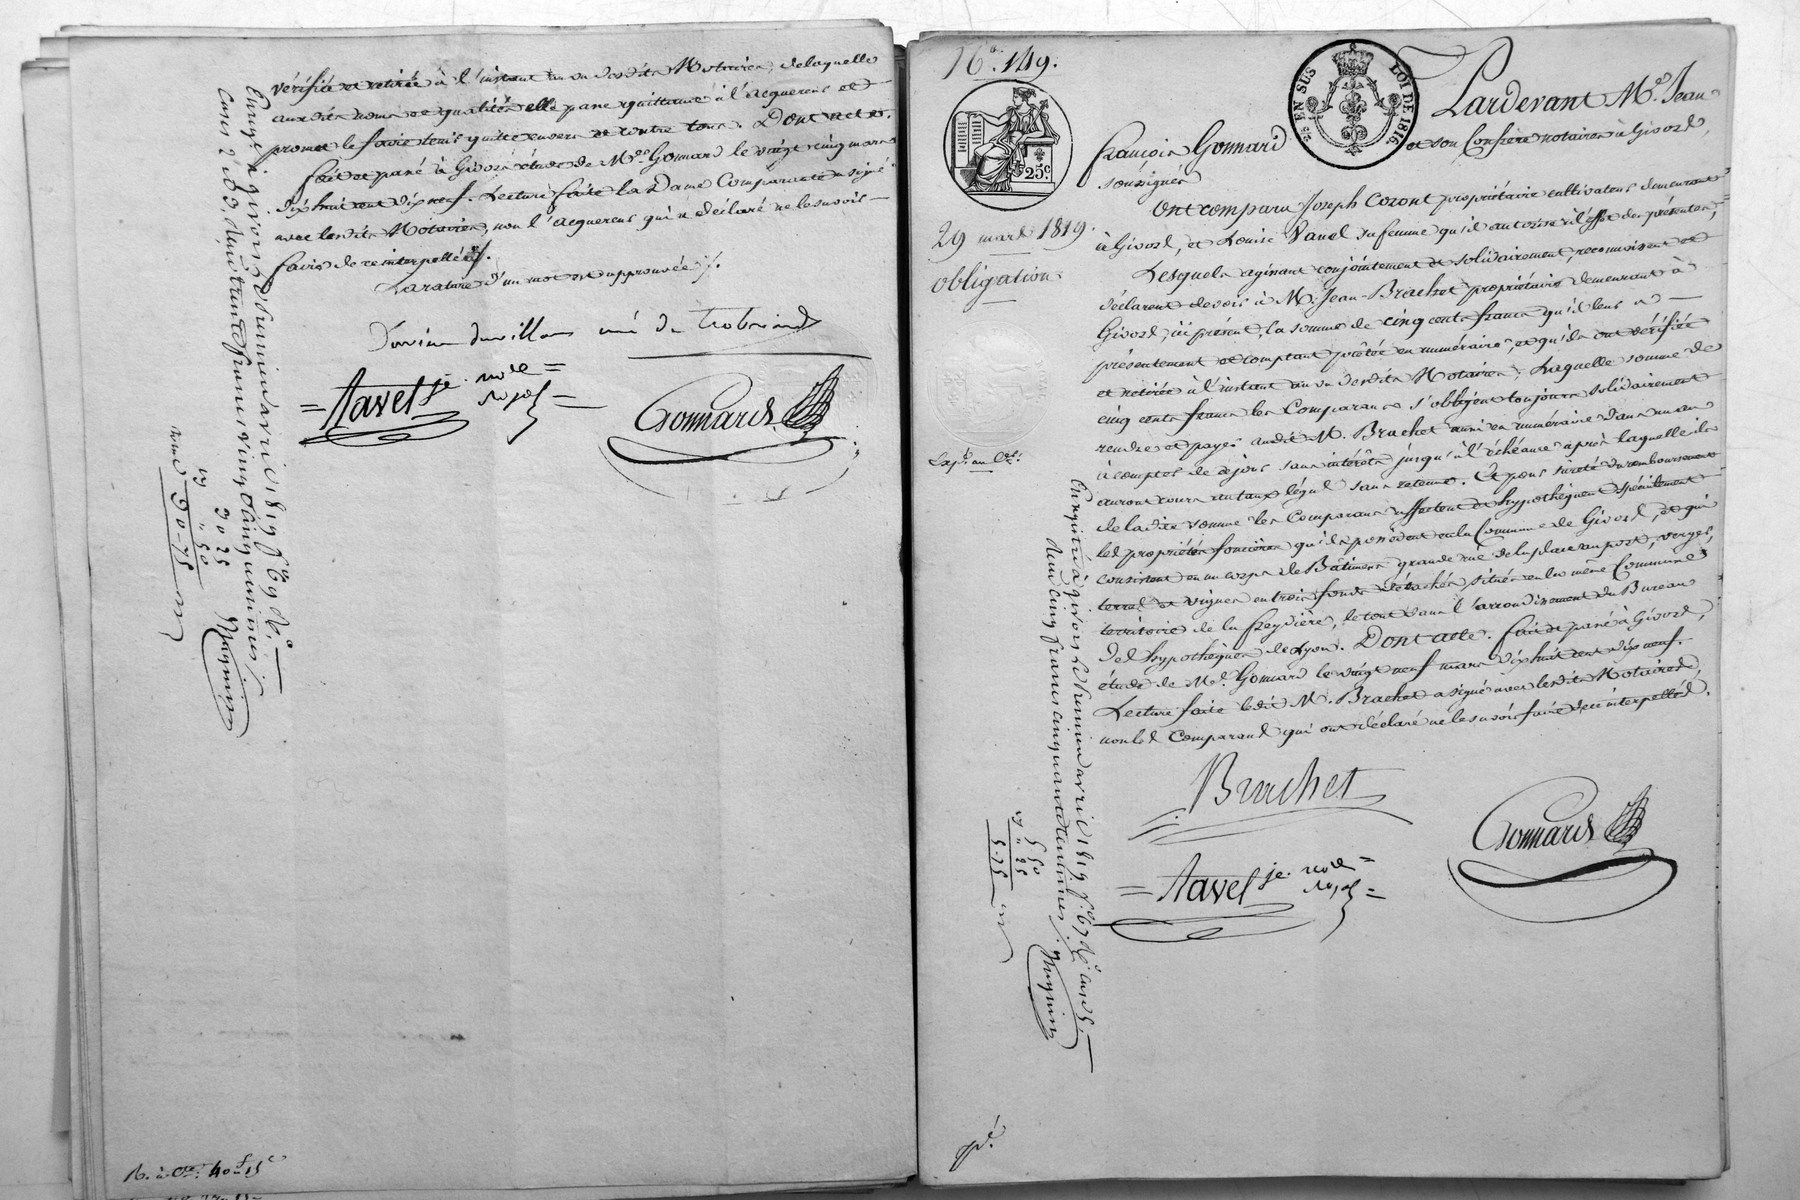 vérifiée et retirée à l'instant au vu desdits Notaires, de laquelle
auxdits noms et qualités elle passe quittance à l'acquereur et
promet le faire tenir quitte envers et contre tous. Dont acte.
fait et passé à Givors étude de Me. Gonnard le vingt cinq mars
dix huit cent dix neuf. Lecture faite la Dame Comparante a signé
avec lesdits Notaires, non l'acquereur qui a déclaré ne le savoir
faire de ce interpellé ./.
La rature d'un mot est approuvée ./.
Tavel je. no.re
Gonnard
Enregistré à givors le huit avril 1819 f.
50
30 25
30-75
R. à 40 f 15 c
N.o 149.
25 EN SUS
LOI DE 1816
25c.
Pardevant Me. Jean
françois Gonnard et son Confrère notaires à Givors,
soussignés
29 mars 1819.
obligation
Ont comparu Joseph Coront propriétaire cultivateur demeurant
à Givors, et Louise Vanel sa femme qu'il autorise à l'effet des présentes,
Lesquels agissant conjointement et solidairement, reconnoissent et
déclarent devoir à M. Jean-Brachet propriétaire demeurant à
Givors, ici présent, la somme de cinq cents francs qu'il leur a
présentement et comptant prêtée en numéraire, et qu'ils ont vérifiée
et retirée à l'instant au vu desdits Notaires; Laquelle somme de
cinq cents francs les Comparans s'obligent toujours solidairement
rendre et payer audit M. Brachet aussi en numéraire dans un an
à compter de ce jour sans intérêts jusqu'à l'échéance après laquelle ils
auront cours au taux légal sans retenue. Et pour sureté du remboursement
de ladite somme les Comparans affectent et hypothèquent spécialement
les propriétés foncières qu'ils possèdent en la Commune de Givors, et qui
consistent en un corps de Bâtimens grande rue de la place au port, verger,
terres et vignes en trois fonds détachés situés en la même Commune
territoire de la freydière, le tout dans l'arrondissement du Bureau
des hypothèques de Lyon. Dont acte. fait et passé à Givors,
étude de Me. Gonnard le vingt neuf mars dix huit cent dix neuf.
Lecture faite ledit M. Brachet a signé avec lesdits Notaires,
non les Comparans qui ont déclaré ne le savoir faire de ce interpellés.
Brachet
Tavel je. no.re
Gonnard
Enregistré à givors le huit avril 1819. f.
deux cinq francs cinquante centimes.
5 50
55